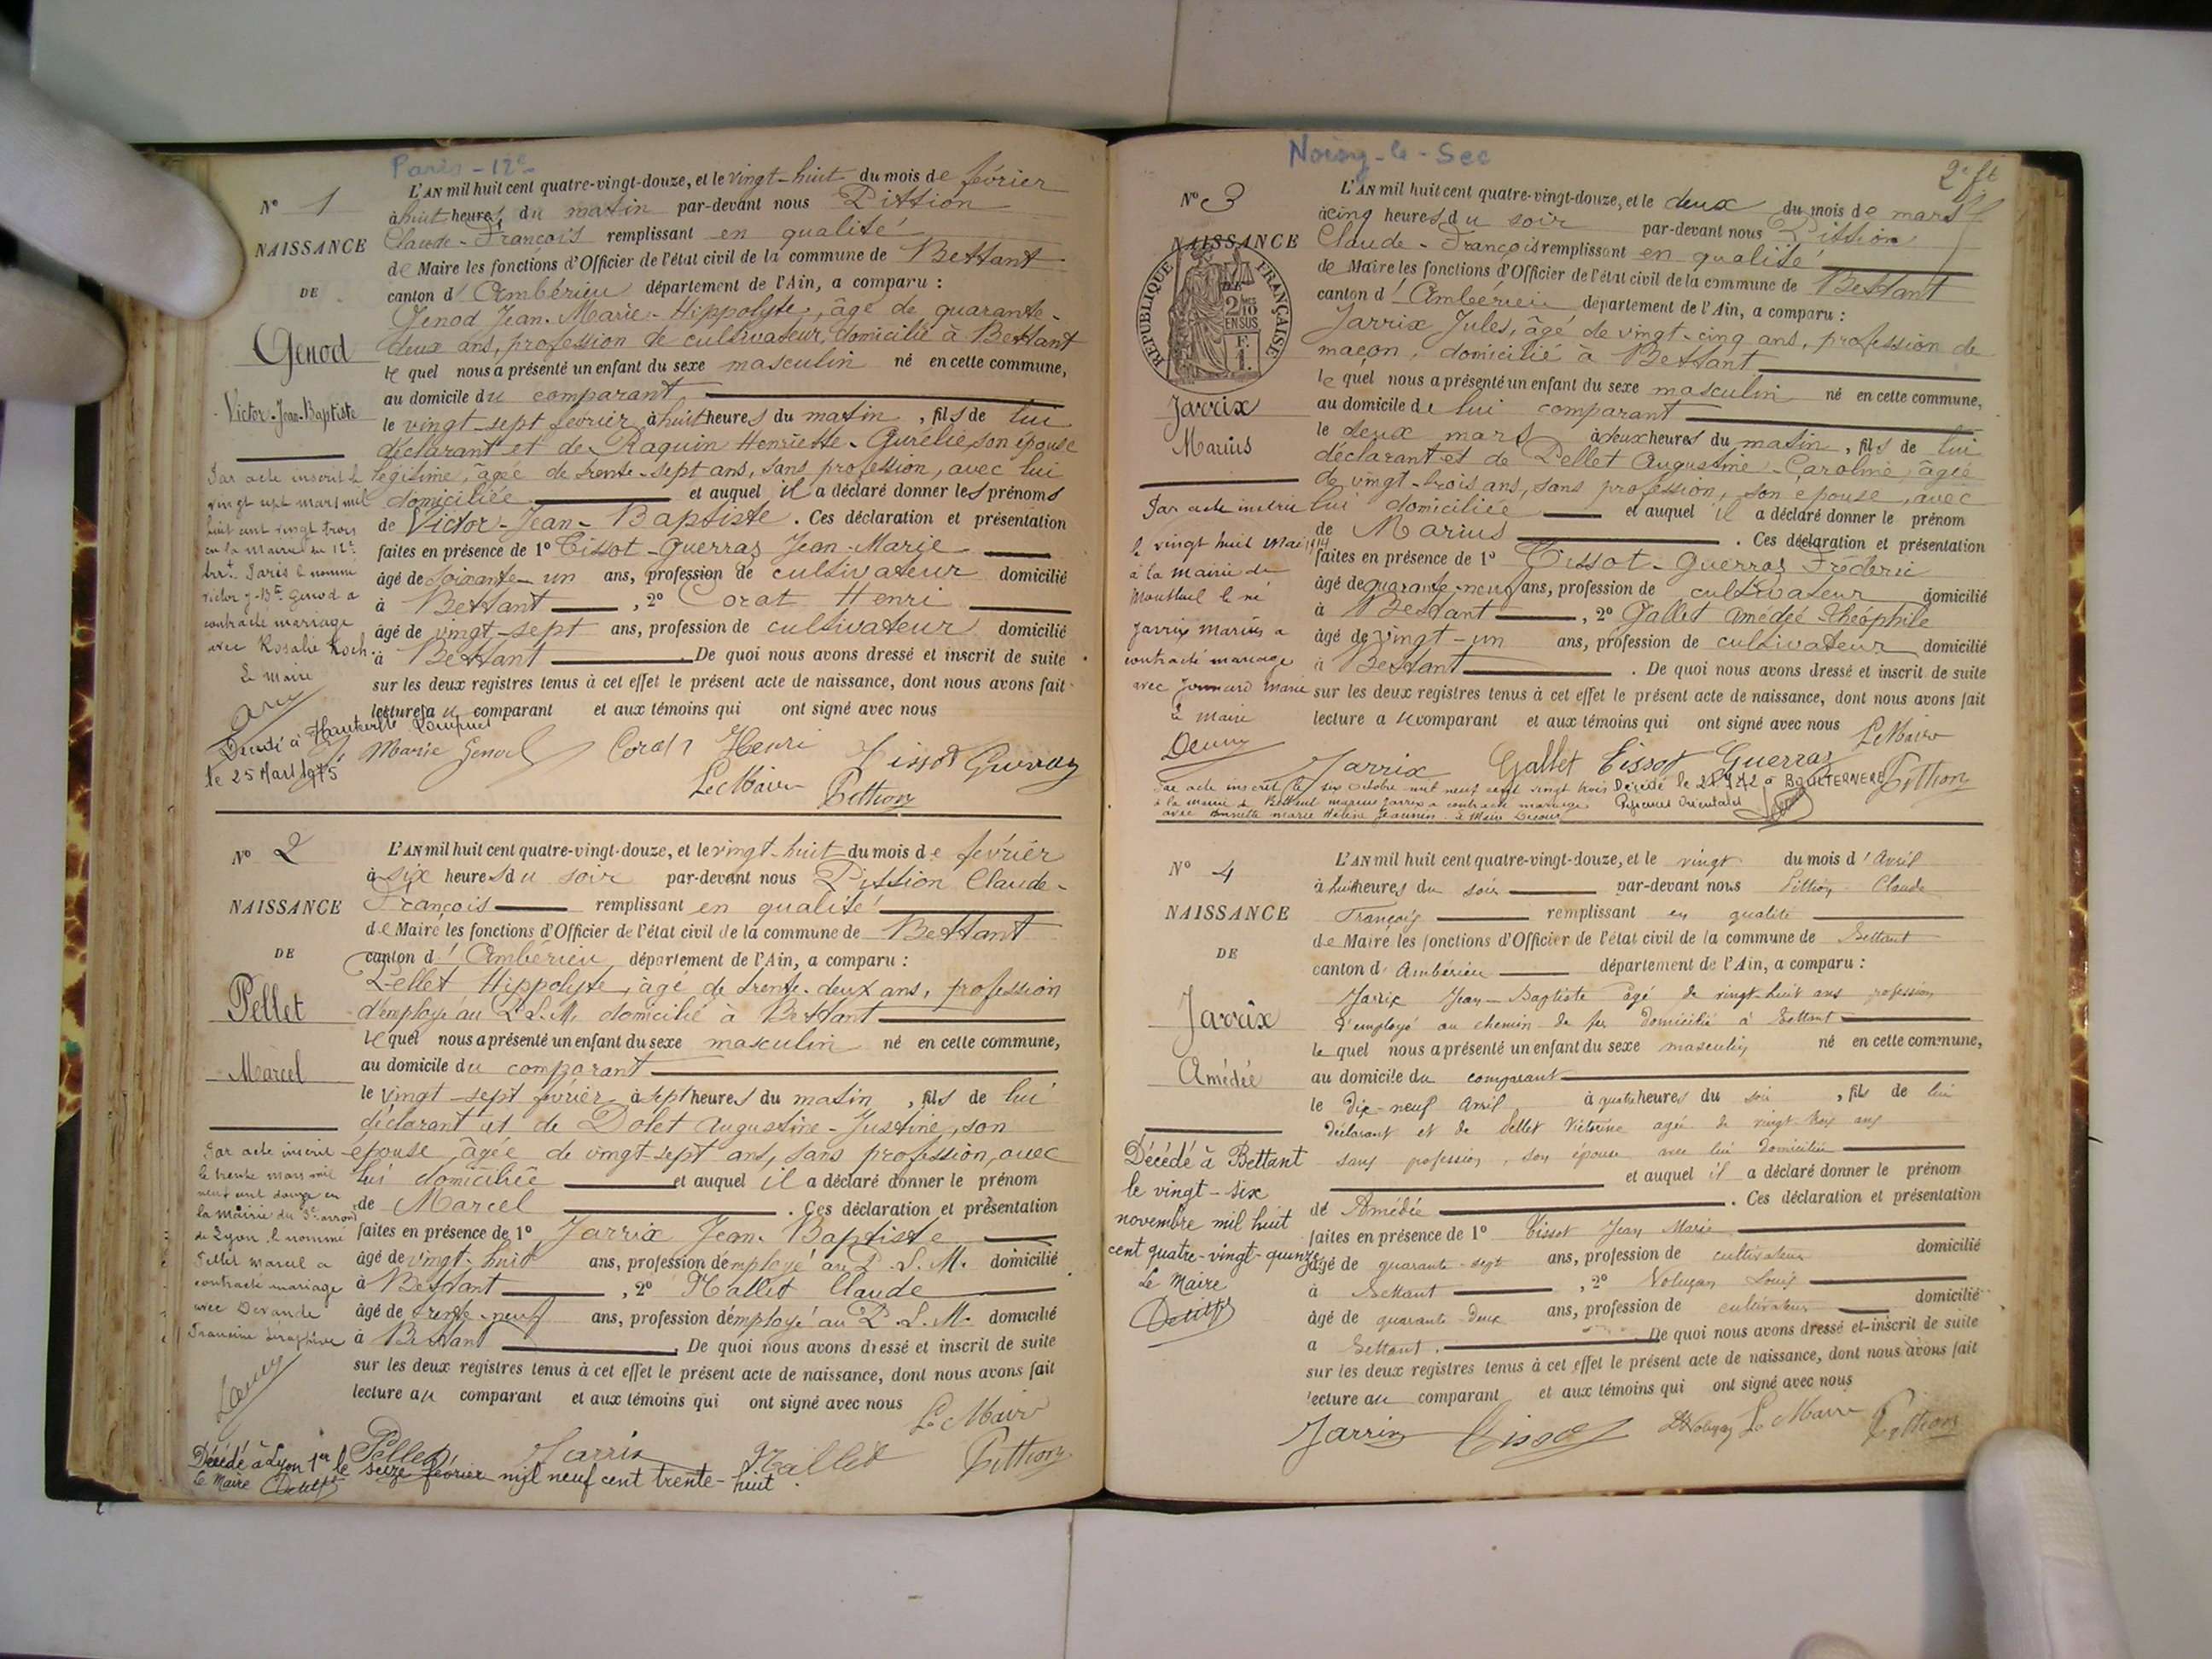 Paris - 12e
N° 1
NAISSANCE
DE
Genod
Victor-Jean-Baptiste
L'AN mil huit cent quatre-vingt-douze, et le vingt-huit du mois de février
à huit heures du matin par-devant nous Pittion
Claude-François remplissant en qualité
de Maire les fonctions d'Officier de l'état civil de la commune de Bettant
canton d'Ambérieu département de l'Ain, a comparu :
Genod Jean-Marie-Hippolyte, âgé de quarante-
deux ans, profession de cultivateur, domicilié à Bettant
lequel nous a présenté un enfant du sexe masculin né en cette commune,
au domicile du comparant
le vingt-sept février à huit heures du matin, fils de lui
déclarant et de Raquin Henriette-Aurélie, son épouse
légitime, âgée de trente-sept ans, sans profession, avec lui
domiciliée et auquel il a déclaré donner les prénoms
de Victor-Jean-Baptiste. Ces déclaration et présentation
faites en présence de 1° Tissot-Guerraz Jean-Marie
âgé de soixante-un ans, profession de cultivateur domicilié
à Bettant, 2° Corat Henri
âgé de vingt-sept ans, profession de cultivateur domicilié
à Bettant. De quoi nous avons dressé et inscrit de suite
sur les deux registres tenus à cet effet le présent acte de naissance, dont nous avons fait
lecture au comparant et aux témoins qui ont signé avec nous
Par acte inscrit le
vingt sept mars mil
huit cent vingt trois
en la mairie du 12e
arrt. Paris le nommé
Victor J-Bte Genod a
contracté mariage
avec Rosalie Koch.
Le Maire
Décédé à Hauteville Lompnes
le 25 Mars 1975
Marie Genod Corat Henri Tissot Guerraz
Le Maire Pittion
N° 2
NAISSANCE
DE
Pellet
Marcel
L'AN mil huit cent quatre-vingt-douze, et le vingt-huit du mois de février
à six heures du soir par-devant nous Pittion Claude-
François remplissant en qualité
de Maire les fonctions d'Officier de l'état civil de la commune de Bettant
canton d'Ambérieu département de l'Ain, a comparu :
Pellet Hippolyte, âgé de trente-deux ans, profession
d'employé au P.L.M. domicilié à Bettant
lequel nous a présenté un enfant du sexe masculin né en cette commune,
au domicile du comparant
le vingt-sept février à sept heures du matin, fils de lui
déclarant et de Dolet Augustine-Justine, son
épouse, âgée de vingt-sept ans, sans profession, avec
lui domiciliée et auquel il a déclaré donner le prénom
de Marcel. Ces déclaration et présentation
faites en présence de 1° Jarrix Jean-Baptiste
âgé de vingt-huit ans, profession d'employé au P.L.M. domicilié
à Bettant, 2° Mallet Claude
âgé de trente-neuf ans, profession d'employé au P.L.M. domicilié
à Bettant. De quoi nous avons dressé et inscrit de suite
sur les deux registres tenus à cet effet le présent acte de naissance, dont nous avons fait
lecture au comparant et aux témoins qui ont signé avec nous
Par acte inscrit
le trente mars mil
neuf cent douze en
la mairie du 3e arrondt
de Lyon, le nommé
Pellet Marcel a
contracté mariage
avec Devande
Francine Séraphine
Pellet Jarrix Mallet Le Maire Pittion
Décédé à Lyon 1er le seize février mil neuf cent trente-huit.
Le Maire
Noisy-le-Sec
2e ft
N° 3
NAISSANCE
DE
RÉPUBLIQUE FRANÇAISE
2/10
EN SUS
F.
1.
Jarrix
Marius
L'AN mil huit cent quatre-vingt-douze, et le deux du mois de mars
à cinq heures du soir par-devant nous Pittion
Claude-François remplissant en qualité
de Maire les fonctions d'Officier de l'état civil de la commune de Bettant
canton d'Ambérieu département de l'Ain, a comparu :
Jarrix Jules, âgé de vingt-cinq ans, profession de
maçon, domicilié à Bettant
lequel nous a présenté un enfant du sexe masculin né en cette commune,
au domicile de lui comparant
le deux mars à deux heures du matin, fils de lui
déclarant et de Pellet Augustine-Caroline, âgée
de vingt-trois ans, sans profession, son épouse, avec
lui domiciliée et auquel il a déclaré donner le prénom
de Marius. Ces déclaration et présentation
faites en présence de 1° Tissot-Guerraz Fréderic
âgé de quarante-neuf ans, profession de cultivateur domicilié
à Bettant, 2° Gallet Amédée Théophile
âgé de vingt-un ans, profession de cultivateur domicilié
à Bettant. De quoi nous avons dressé et inscrit de suite
sur les deux registres tenus à cet effet le présent acte de naissance, dont nous avons fait
lecture au comparant et aux témoins qui ont signé avec nous
Par acte inscrit
le vingt huit Mai 1914
à la mairie de
Montluel le né
Jarrix Marius a
contracté mariage
avec Jonnard Marie
Le Maire
Jarrix Gallet Tissot Guerraz Le Maire Pittion
Par acte inscrit le six octobre mil neuf cent vingt trois
à la mairie de Marius Jarrix a contracté mariage
avec Marie Hélène Le Maire
Décédé le à BOULTERNERE
Pyrénées Orientales
N° 4
NAISSANCE
DE
Jarrix
Amédée
L'AN mil huit cent quatre-vingt-douze, et le vingt du mois d'Avril
à huit heures du soir par-devant nous Pittion Claude
François remplissant en qualité
de Maire les fonctions d'Officier de l'état civil de la commune de Bettant
canton d'Ambérieu département de l'Ain, a comparu :
Jarrix Jean-Baptiste âgé de vingt-huit ans profession
d'employé au chemin de fer domicilié à Bettant
lequel nous a présenté un enfant du sexe masculin né en cette commune,
au domicile du comparant
le dix-neuf Avril à quatre heures du soir, fils de lui
déclarant et de Pellet Victorine agée de vingt-trois ans
sans profession, son épouse avec lui domiciliée
et auquel il a déclaré donner le prénom
de Amédée. Ces déclaration et présentation
faites en présence de 1° Tissot Jean Marie
âgé de quarante-sept ans, profession de cultivateur domicilié
à Bettant, 2° Louis
âgé de quarante deux ans, profession de cultivateur domicilié
a Bettant. De quoi nous avons dressé et inscrit de suite
sur les deux registres tenus à cet effet le présent acte de naissance, dont nous avons fait
lecture au comparant et aux témoins qui ont signé avec nous
Décédé à Bettant
le vingt-six
novembre mil huit
cent quatre-vingt-quinze
Le Maire
Jarrix Tissot Le Maire Pittion